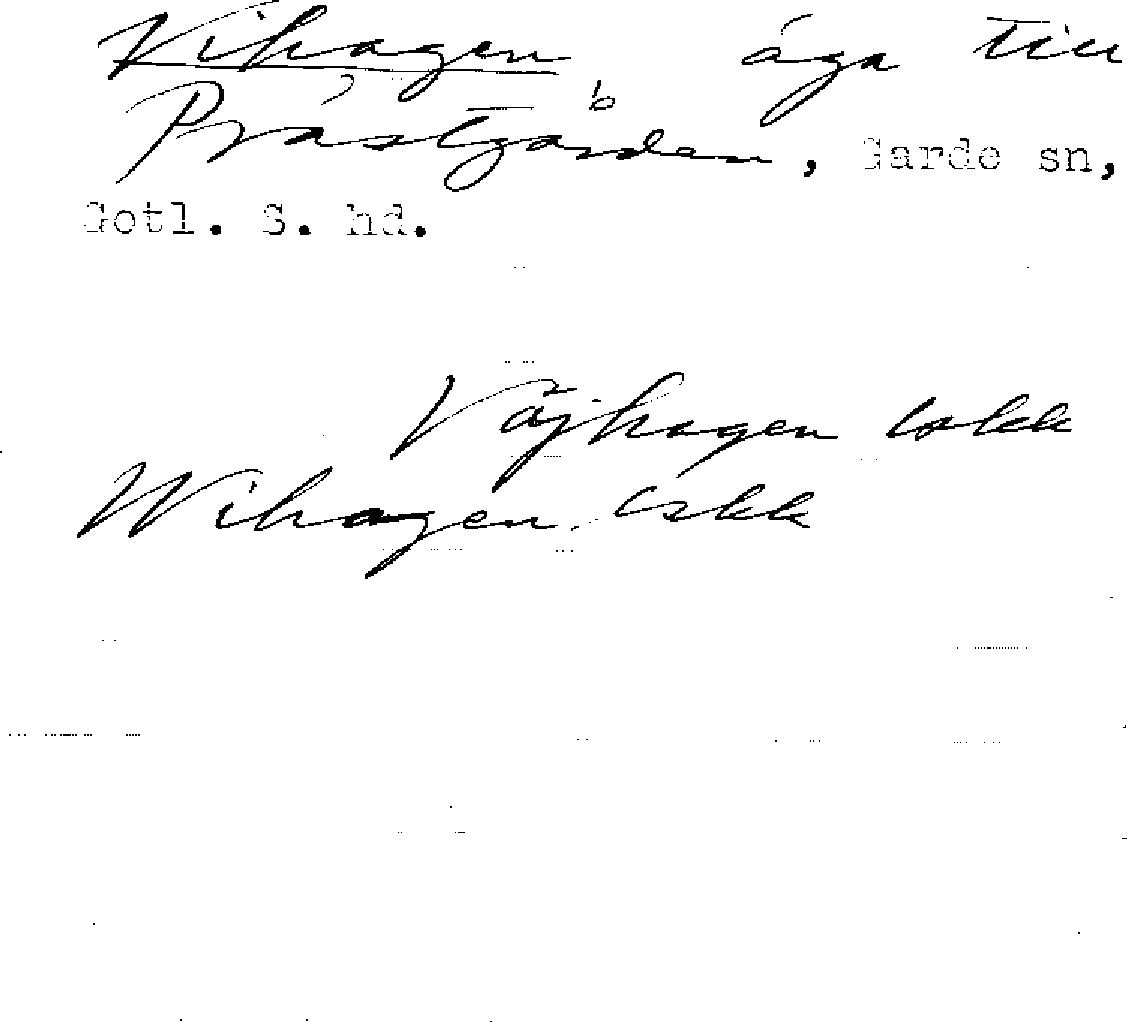 Vihagen äga till
Prästgården, Garde sn,
Gotl. S. hd.
Väjhagen Lskk
Wihagen Lskk